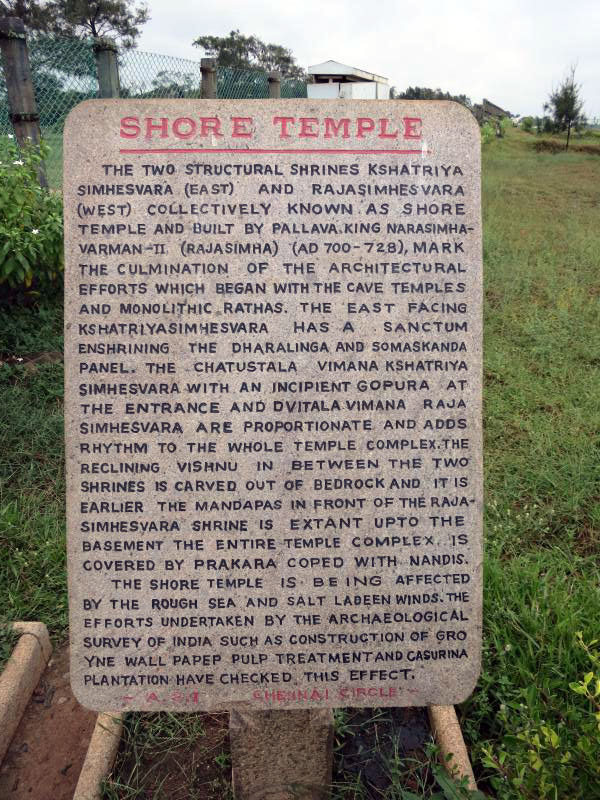 SHORE TEMPLE
THE TWO STRUCTURAL SHRINES KSHATRIYA
SIMHESVARA (EAST) AND RAJASIMHESVARA
(WEST) COLLECTIVELY KNOWN AS SHORE
TEMPLE AND BUILT BY PALLAVA KING NARASIMHA-
VARMAN-II (RAJASIMHA) (AD 700-728), MARK
THE CULMINATION OF THE ARCHITECTURAL
EFFORTS WHICH BEGAN WITH THE CAVE TEMPLES
AND MONOLITHIC RATHAS. THE EAST FACING
KSHATRIYASIMHESVARA HAS A SANCTUM
ENSHRINING THE DHARALINGA AND SOMASKANDA
PANEL. THE CHATUSTALA VIMANA KSHATRIYA
SIMHESVARA WITH AN INCIPIENT GOPURA AT
THE ENTRANCE AND DVITALA VIMANA RAJA
SIMHESVARA ARE PROPORTIONATE AND ADDS
RHYTHM TO THE WHOLE TEMPLE COMPLEX. THE
RECLINING VISHNU IN BETWEEN THE TWO
SHRINES IS CARVED OUT OF BEDROCK AND IT IS
EARLIER THE MANDAPAS IN FRONT OF THE RAJA-
SIMHESVARA SHRINE IS EXTANT UPTO THE
BASEMENT THE ENTIRE TEMPLE COMPLEX IS
COVERED BY PRAKARA COPED WITH NANDIS.
THE SHORE TEMPLE IS BEING AFFECTED
BY THE ROUGH SEA AND SALT LADEEN WINDS. THE
EFFORTS UNDERTAKEN BY THE ARCHAEOLOGICAL
SURVEY OF INDIA SUCH AS CONSTRUCTION OF GRO
YNE WALL PAPEP PULP TREATMENT AND CASURINA
PLANTATION HAVE CHECKED THIS EFFECT.
- A.S.I CHENNAI CIRCLE -